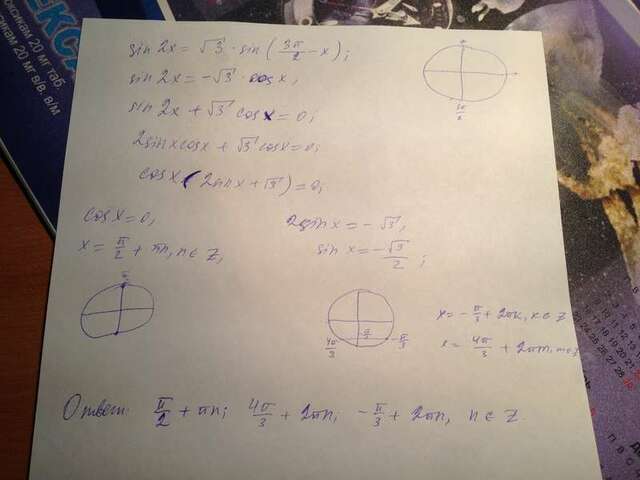 оксикам 20 мг таб.
сикам 20 мг в/в. в/м
ЕКСА
sin 2x = √3 · sin (3π/2 - x);
sin 2x = -√3 · cos x;
sin 2x + √3 cos x = 0;
2 sin x cos x + √3 cos x = 0;
cos x (2 sin x + √3) = 0;
3π/2
cos x = 0,
2 sin x = -√3,
x = π/2 + πn, n ∈ Z,
sin x = -√3/2;
π/2
4π/3
-π/3
-π/3
x = -π/3 + 2πk, k ∈ Z
x = 4π/3 + 2πm, m ∈ Z
Ответ: π/2 + πn; 4π/3 + 2πn; -π/3 + 2πn, n ∈ Z.